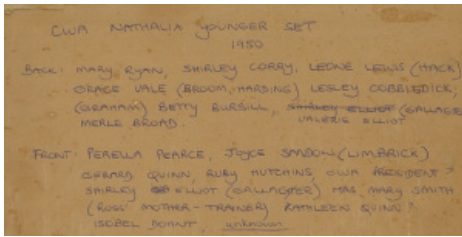 CWA NATHALIA YOUNGER SET
1950
BACK: MARY RYAN, SHIRLEY CORRY, LEONE LEWIS (HACK)
GRACE VALE (BROOM, HARDING) LESLEY COBBLEDICK,
(GRAHAM) BETTY BURSILL, SHIRLEY ELLIOT (GALLAGE
MERLE BROAD. VALERIE ELLIOT
FRONT: PERELLA PEARCE, JOYCE SANDON (LIMBRICK)
GERARD QUINN, RUBY HUTCHINS CWA PRESIDENT
SHIRLEY ELLIOT (GALLAGHER) MRS MARY SMITH
(ROSS' MOTHER - TRAINER) KATHLEEN QUINN?
ISOBEL unknown